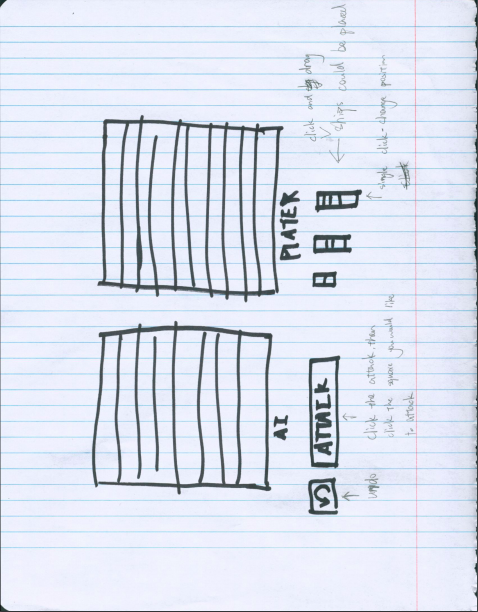 AI
PLAYER
ATTACK
undo
Click the attack, then
click the square you would like
to attack
click and drag
ships could be placed
single click - change position